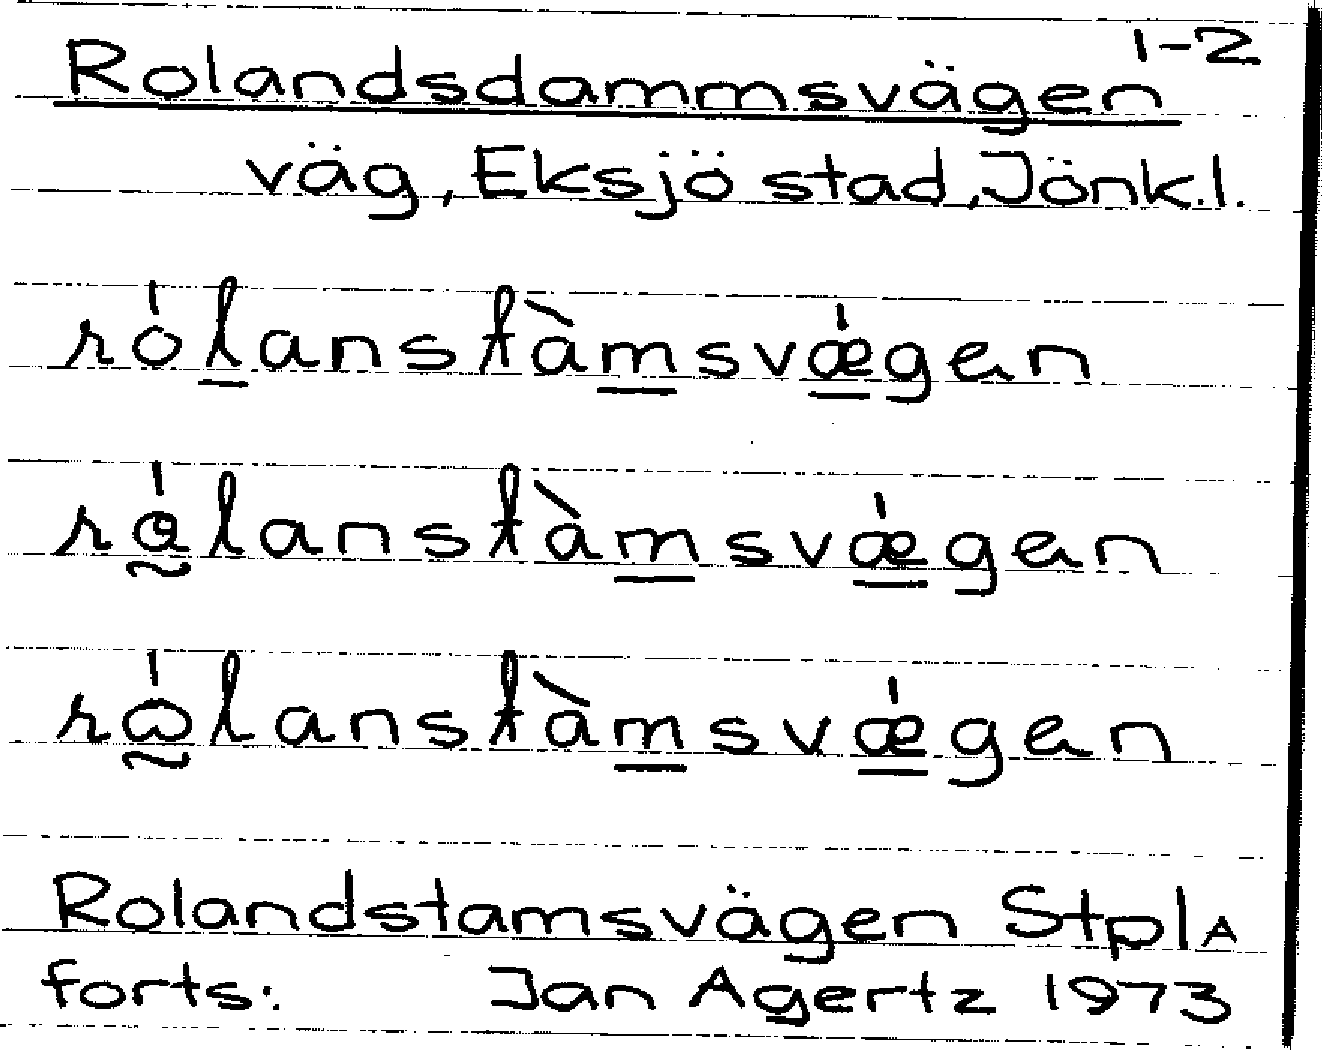 1-2
Rolandsdammsvägen
väg, Eksjö stad, Jönk.l.
rólanstàmsvǽgen
rólanstàmsvǽgen
rólanstàmsvǽgen
Rolandstamsvägen StplA
forts: Jan Agertz 1973